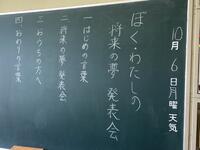 10月6日月曜 天気
ぼく・わたしの
将来の夢 発表会
一 はじめの言葉
二 将来の夢 発表会
三 おうちの方へ
四 おわりの言葉